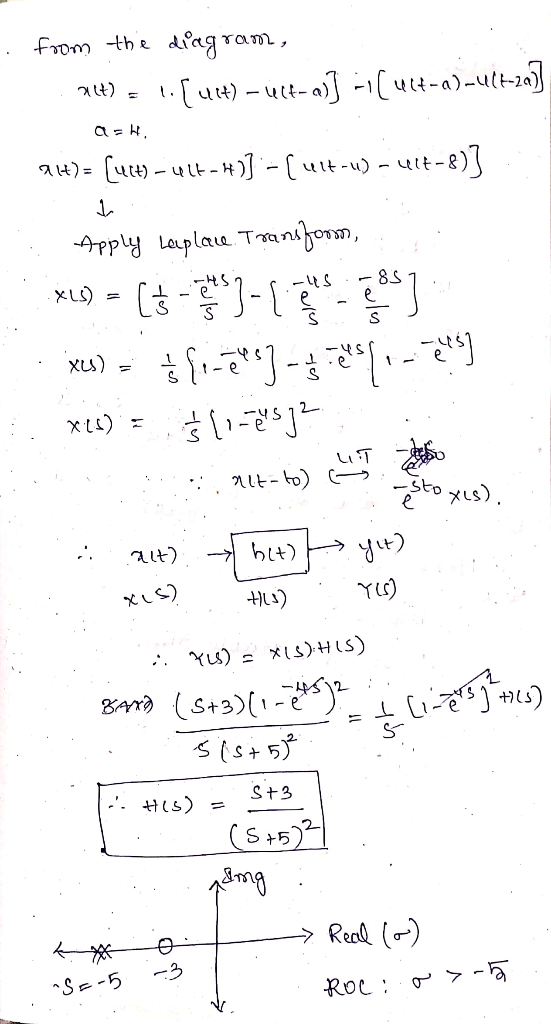 from the diagram,
x(t) = 1.[u(t) - u(t-a)] -1[u(t-a)-u(t-2a)]
a=4.
x(t)= [u(t) - u(t-4)] - [u(t-4) - u(t-8)]
↓
Apply Laplace Transform,
X(s) = [1/s - e^-4s/s] - [e^-4s/s - e^-8s/s]
X(s) = 1/s [1-e^-4s] - 1/s e^-4s [1 - e^-4s]
X(s) = 1/s [1-e^-4s]^2
∵ x(t-to) ↔ L.T e^-sto X(s).
∴ x(t) → h(t) → y(t)
X(s) H(s) Y(s)
∴ Y(s) = X(s).H(s)
(s+3)(1-e^-4s)^2 / s(s+5)^2 = 1/s [1-e^-4s]^2 H(s)
∴ H(s) = s+3 / (s+5)^2
Img
Real (σ)
S=-5 -3
ROC: σ > -5